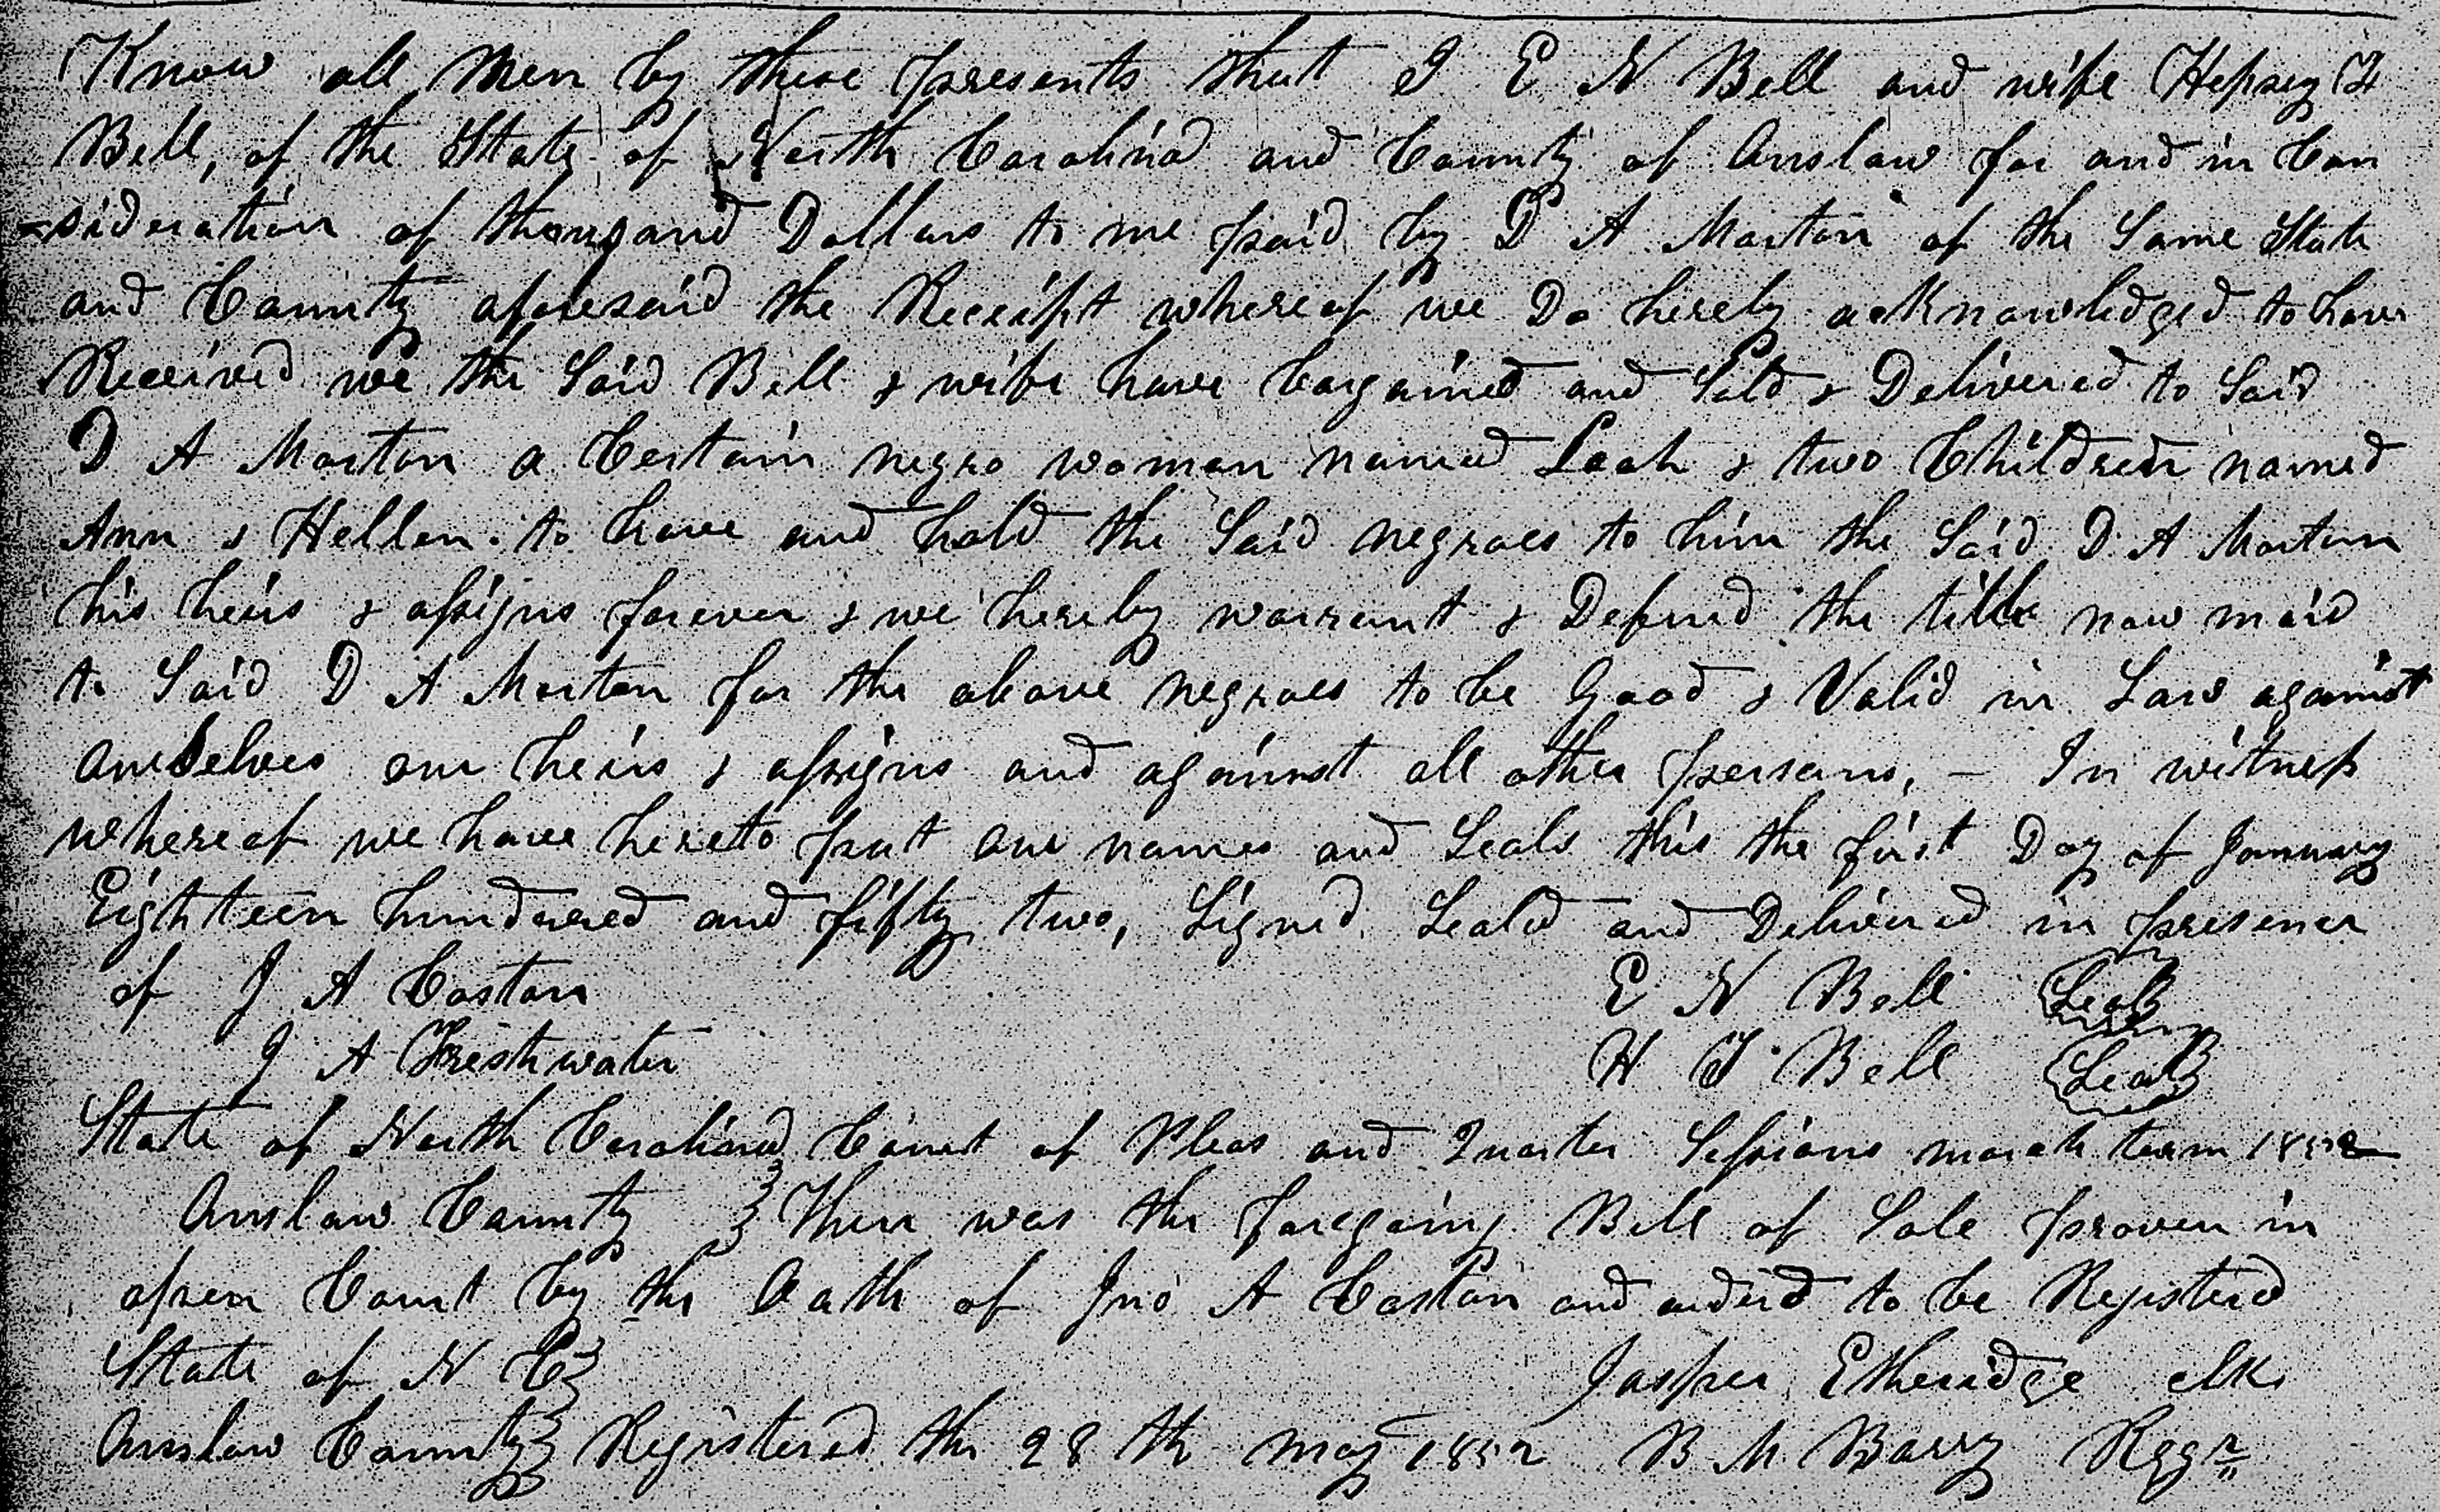 Know all Men by these presents that I E N Bell and wife Hepsey
Bell, of the State of North Carolina and County of Onslow for and in Con
-sideration of thousand Dollars to me paid by D A Morton of the Same State
and County aforesaid the Receipt whereof we Do hereby acknowledged to have
Received we the Said Bell & wife have bargained and Sold & Delivered to Said
D A Morton a Certain negro woman named Leah & two Children named
Ann & Hellen. to have and hold the Said negroes to him the Said D. A Morton
his heirs & assigns forever & we hereby warrant & Defend the title now maid
to Said D A Morton for the above negroes to be Good & Valid in Law against
ourselves our heirs & assigns and against all other persons, - In witness
whereof we have hereto put our names and Seals this the first Day of January
Eighteen hundered and fifty two, Signed Seald and Delivered in presence
of J A Coston E N Bell Seal
J A Freshwater H Bell Seal
State of North Carolina Court of Pleas and Quarter Sessions march term 1852
Onslow County } Then was the foregoing Bill of Sale proven in
open Court by the Oath of Jno A Coston and orderd to be Registerd
State of N C } Jasper Etheridge clk
Onslow County } Registered the 28 th may 1852 B M Barry Regr